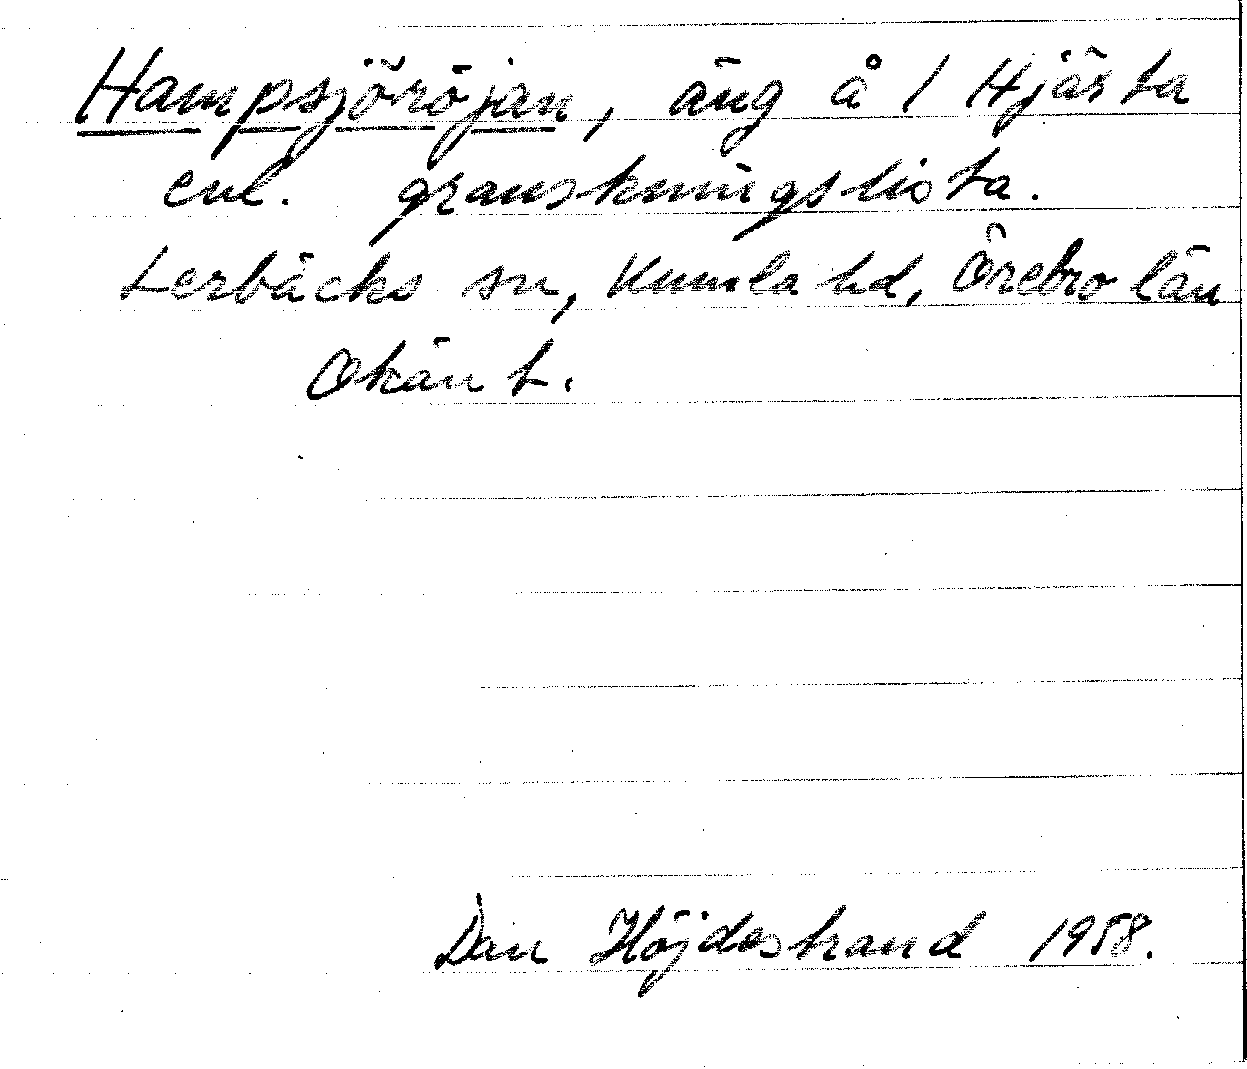 Hampsjöröjan, äng å 1 Hjärta
enl. granskningslista.
Lerbäcks sn, Kumla hd, Örebro län
Okänt.
Dan Höjdestrand 1958.